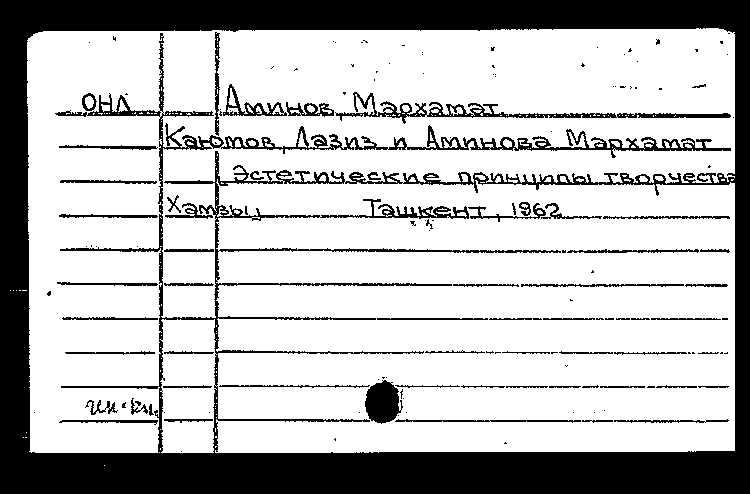 ОНЛ Аминов, Мархамат.
Каюмов, Лазиз и Аминова Мархамат
Эстетические принципы творчества
Хамзы, Ташкент, 1962